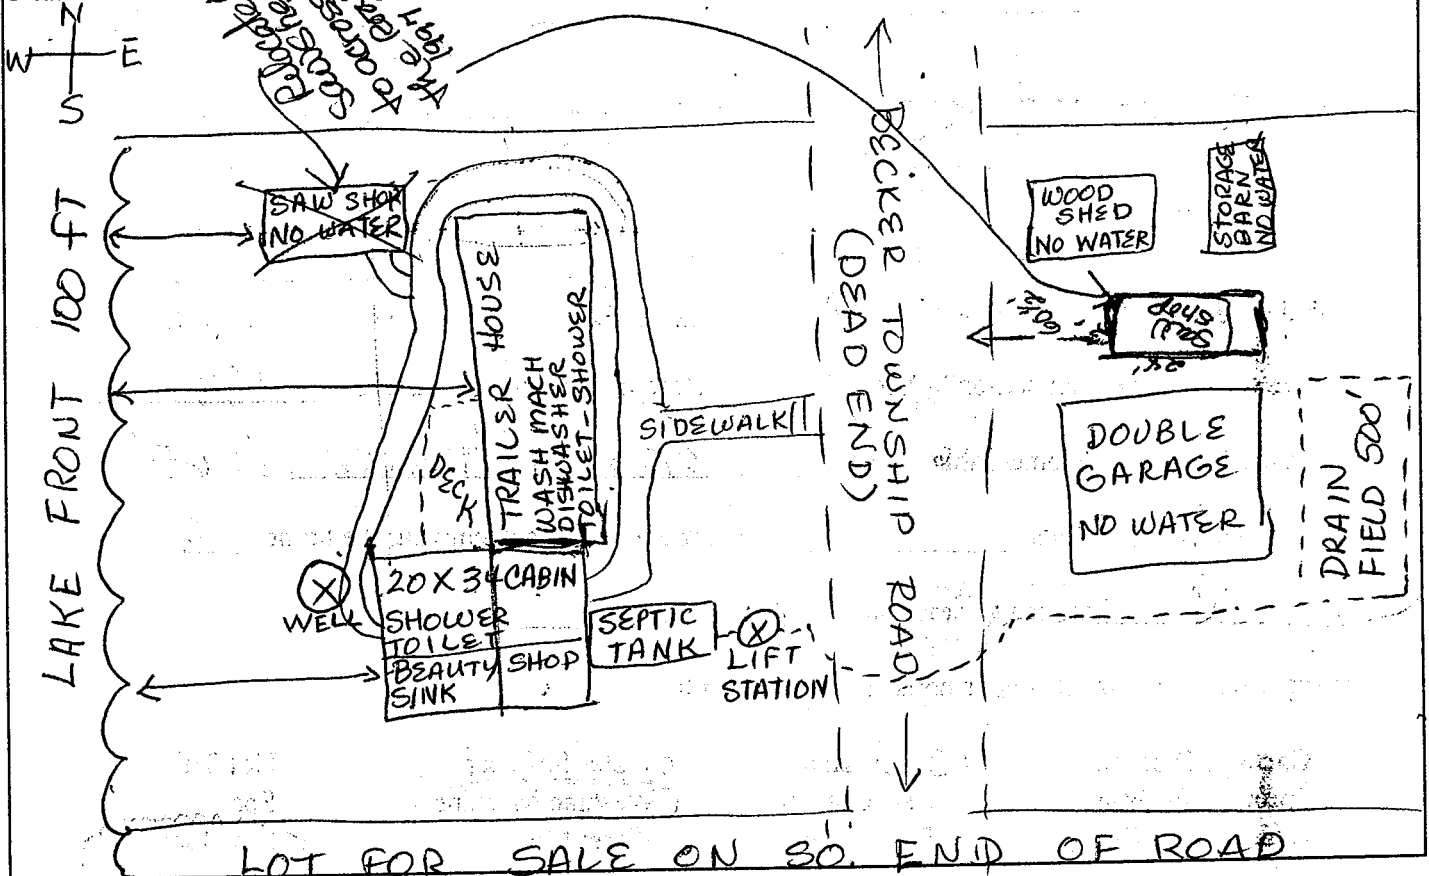 N
W E
S
Relocate
sawshop
to across
the Road
1997
LAKE FRONT 100 FT
SAW SHOP
NO WATER
TRAILER HOUSE
WASH MACH
DISHWASHER
TOILET-SHOWER
DECK
SIDEWALK
WELL
X
20 X 34 CABIN
SHOWER
TOILET
BEAUTY SHOP
SINK
SEPTIC
TANK
X
LIFT
STATION
BECKER TOWNSHIP ROAD
(DEAD END)
WOOD
SHED
NO WATER
STORAGE
BARN
NO WATER
Saw
Shop
DOUBLE
GARAGE
NO WATER
DRAIN
FIELD 500'
LOT FOR SALE ON SO. END OF ROAD